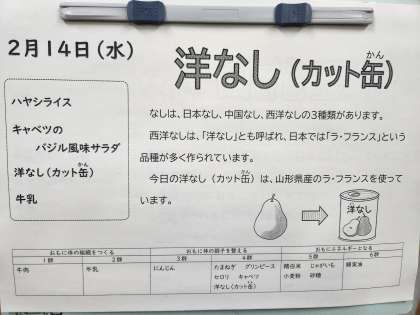 2月14日(水)
洋なし(カット缶)
かん
ハヤシライス
キャベツの
バジル風味サラダ
洋なし(カット缶)
かん
牛乳
なしは、日本なし、中国なし、西洋なしの3種類があります。
西洋なしは、「洋なし」とも呼ばれ、日本では「ラ・フランス」という
品種が多く作られています。
今日の洋なし(カット缶)は、山形県産のラ・フランスを使って
かん
います。
洋なし
おもに体の組織をつくる
おもに体の調子を整える
おもにエネルギーとなる
1群 2群 3群 4群 5群 6群
牛肉 牛乳 にんじん たまねぎ グリンピース 精白米 じゃがいも 綿実油
セロリ キャベツ 小麦粉 砂糖
洋なし(カット缶)